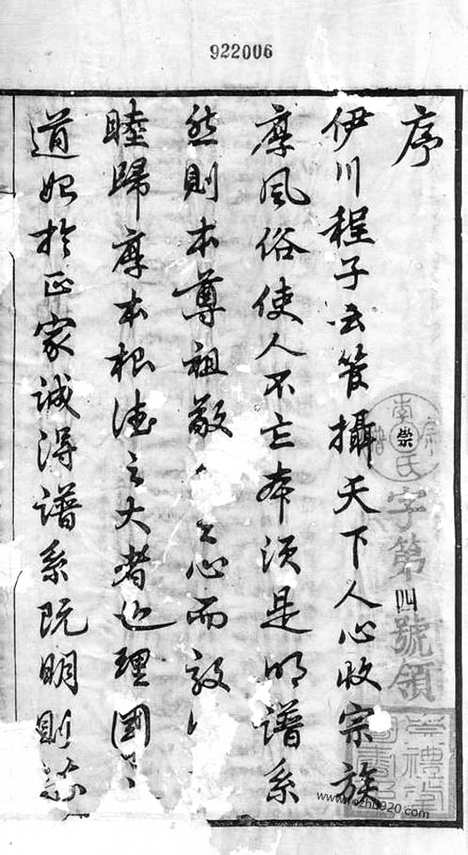 922006
序
伊川程子云管攝天下人心收宗族
厚風俗使人不忘本須是明譜系
然則本尊祖敬之心而敦
睦歸厚本根德之大者也理國
道始於正家誠得譜系既明則
崇
氏字第四號領
www.ozhu920.com